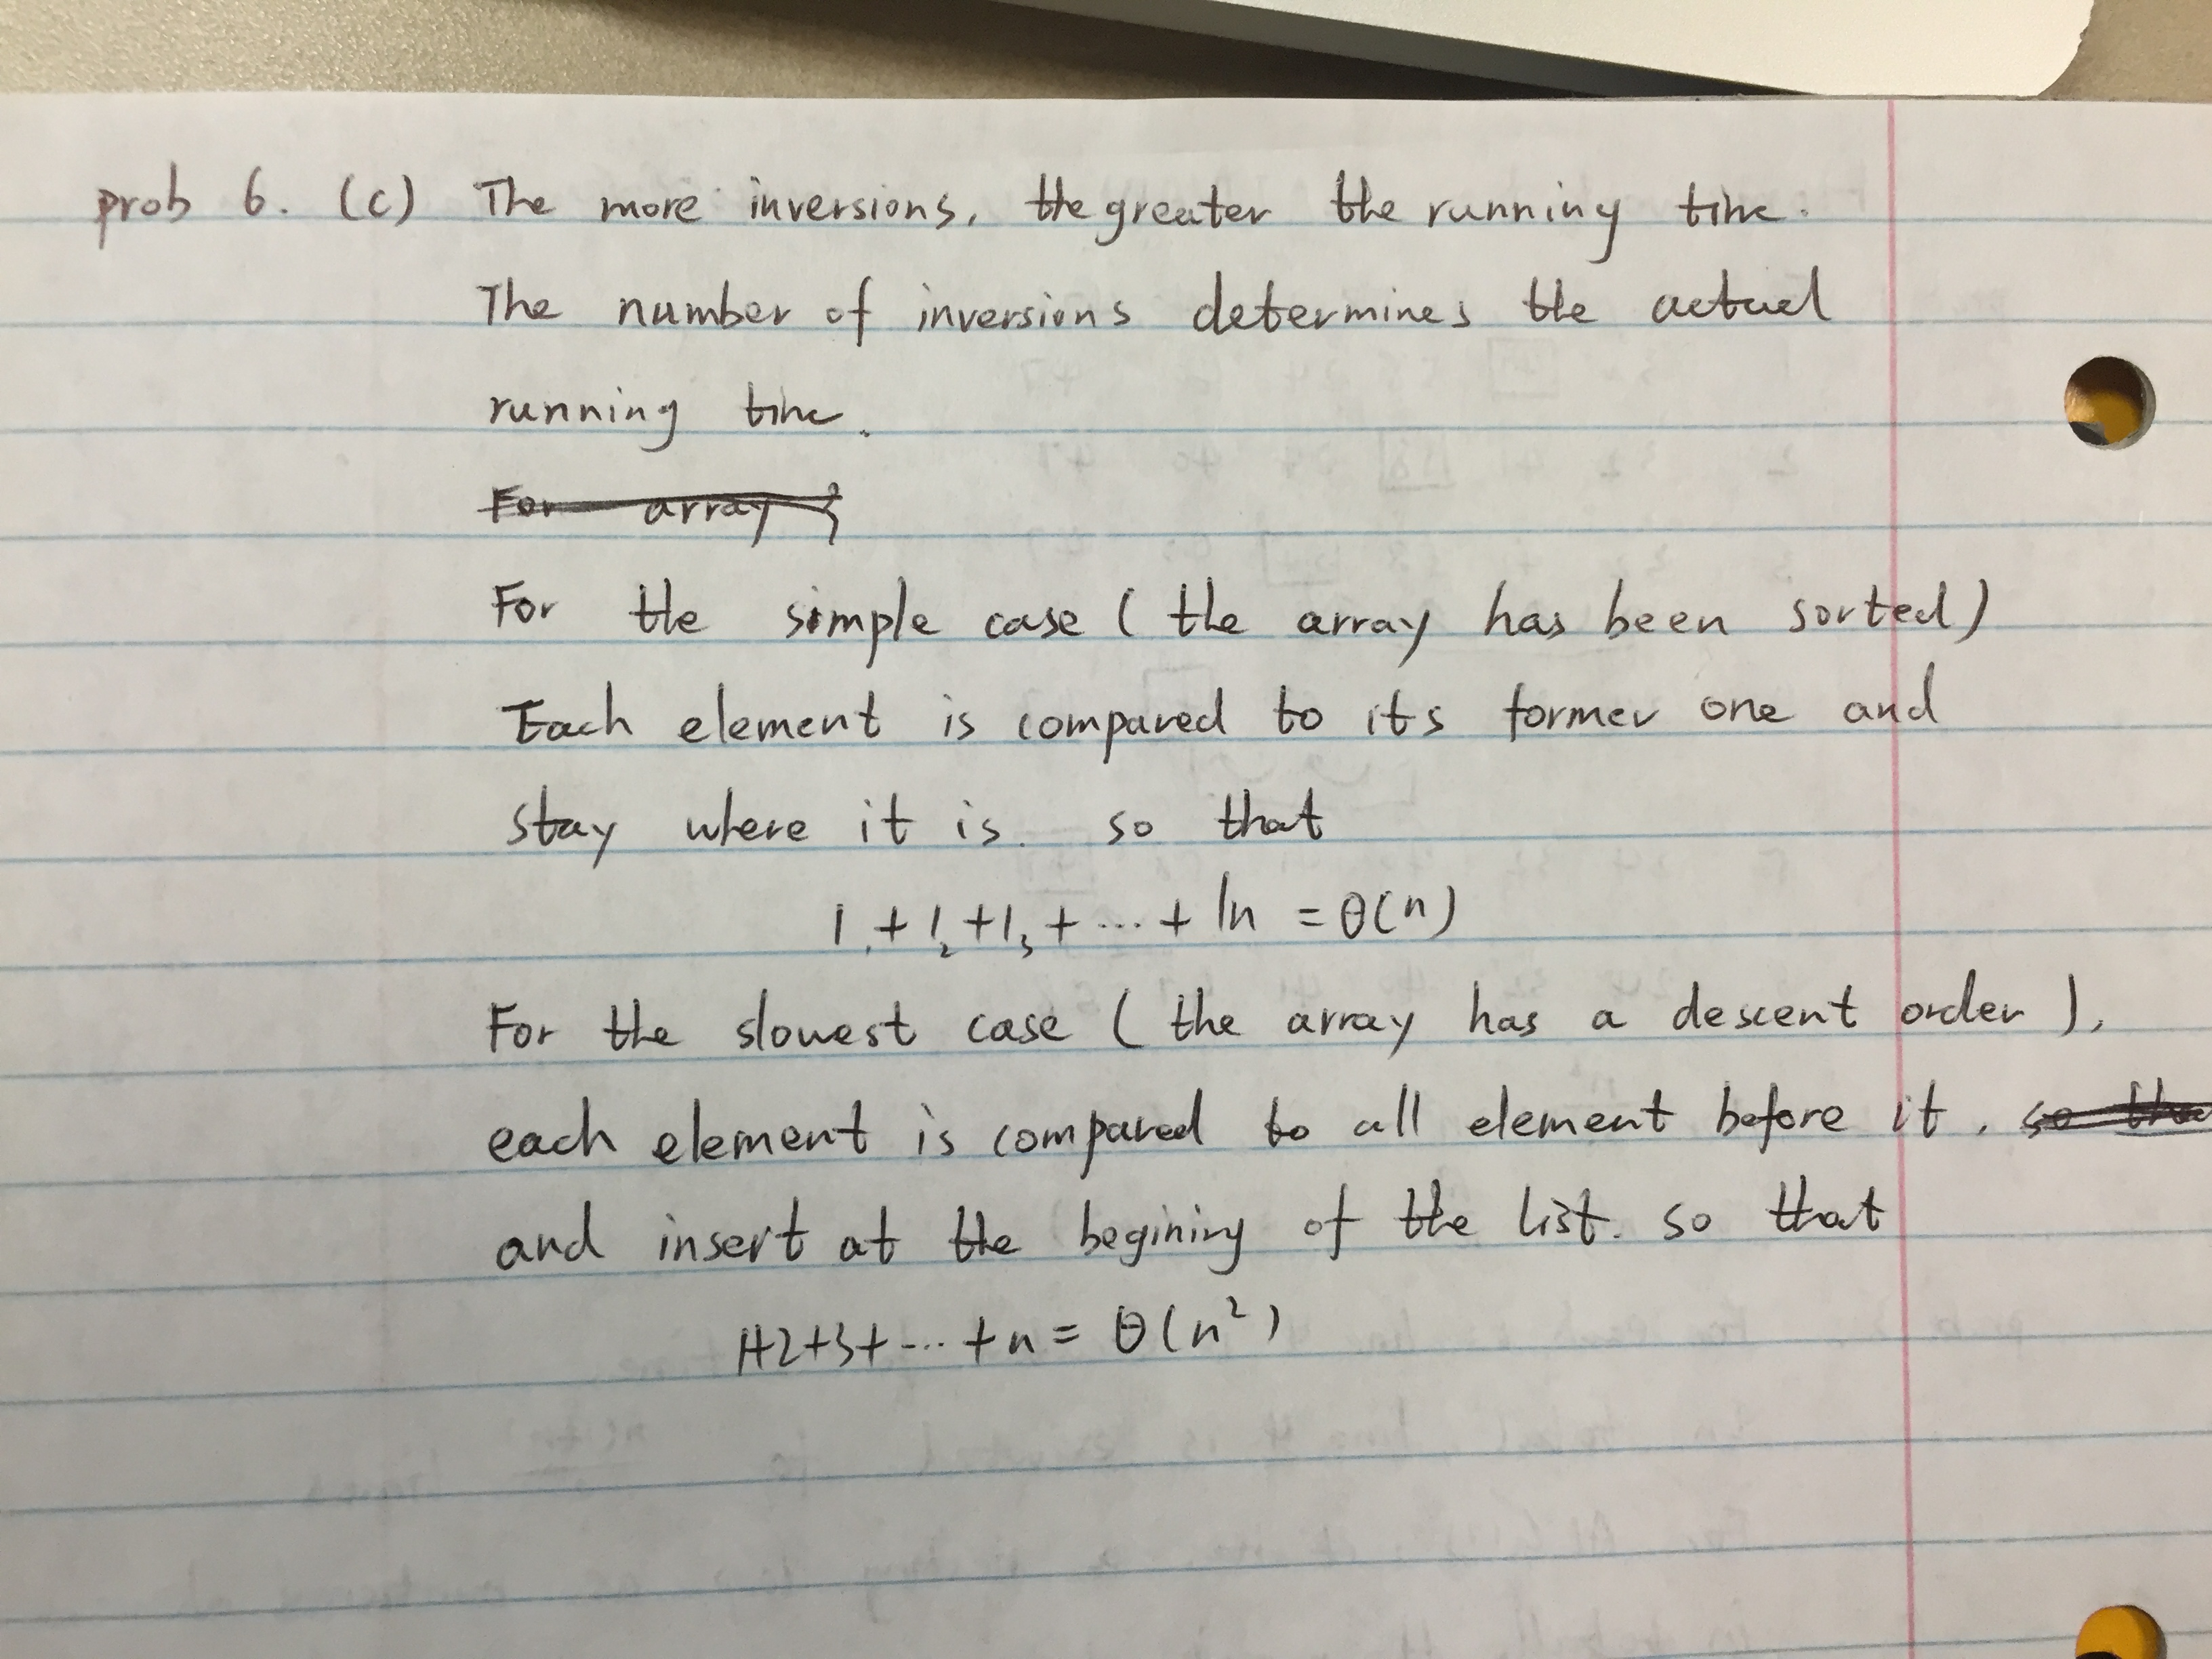 prob 6. (c) The more inversions, the greater the running time.
The number of inversions determines the actual
running time.
For array
For the simple case ( the array has been sorted )
Each element is compared to its former one and
stay where it is. so that
1₁ + 1₂ + 1₃ + ... + 1n = θ(n)
For the slowest case ( the array has a descent order ),
each element is compared to all element before it, so tha
and insert at the begining of the list. so that
1+2+3+ ... + n = θ(n²)